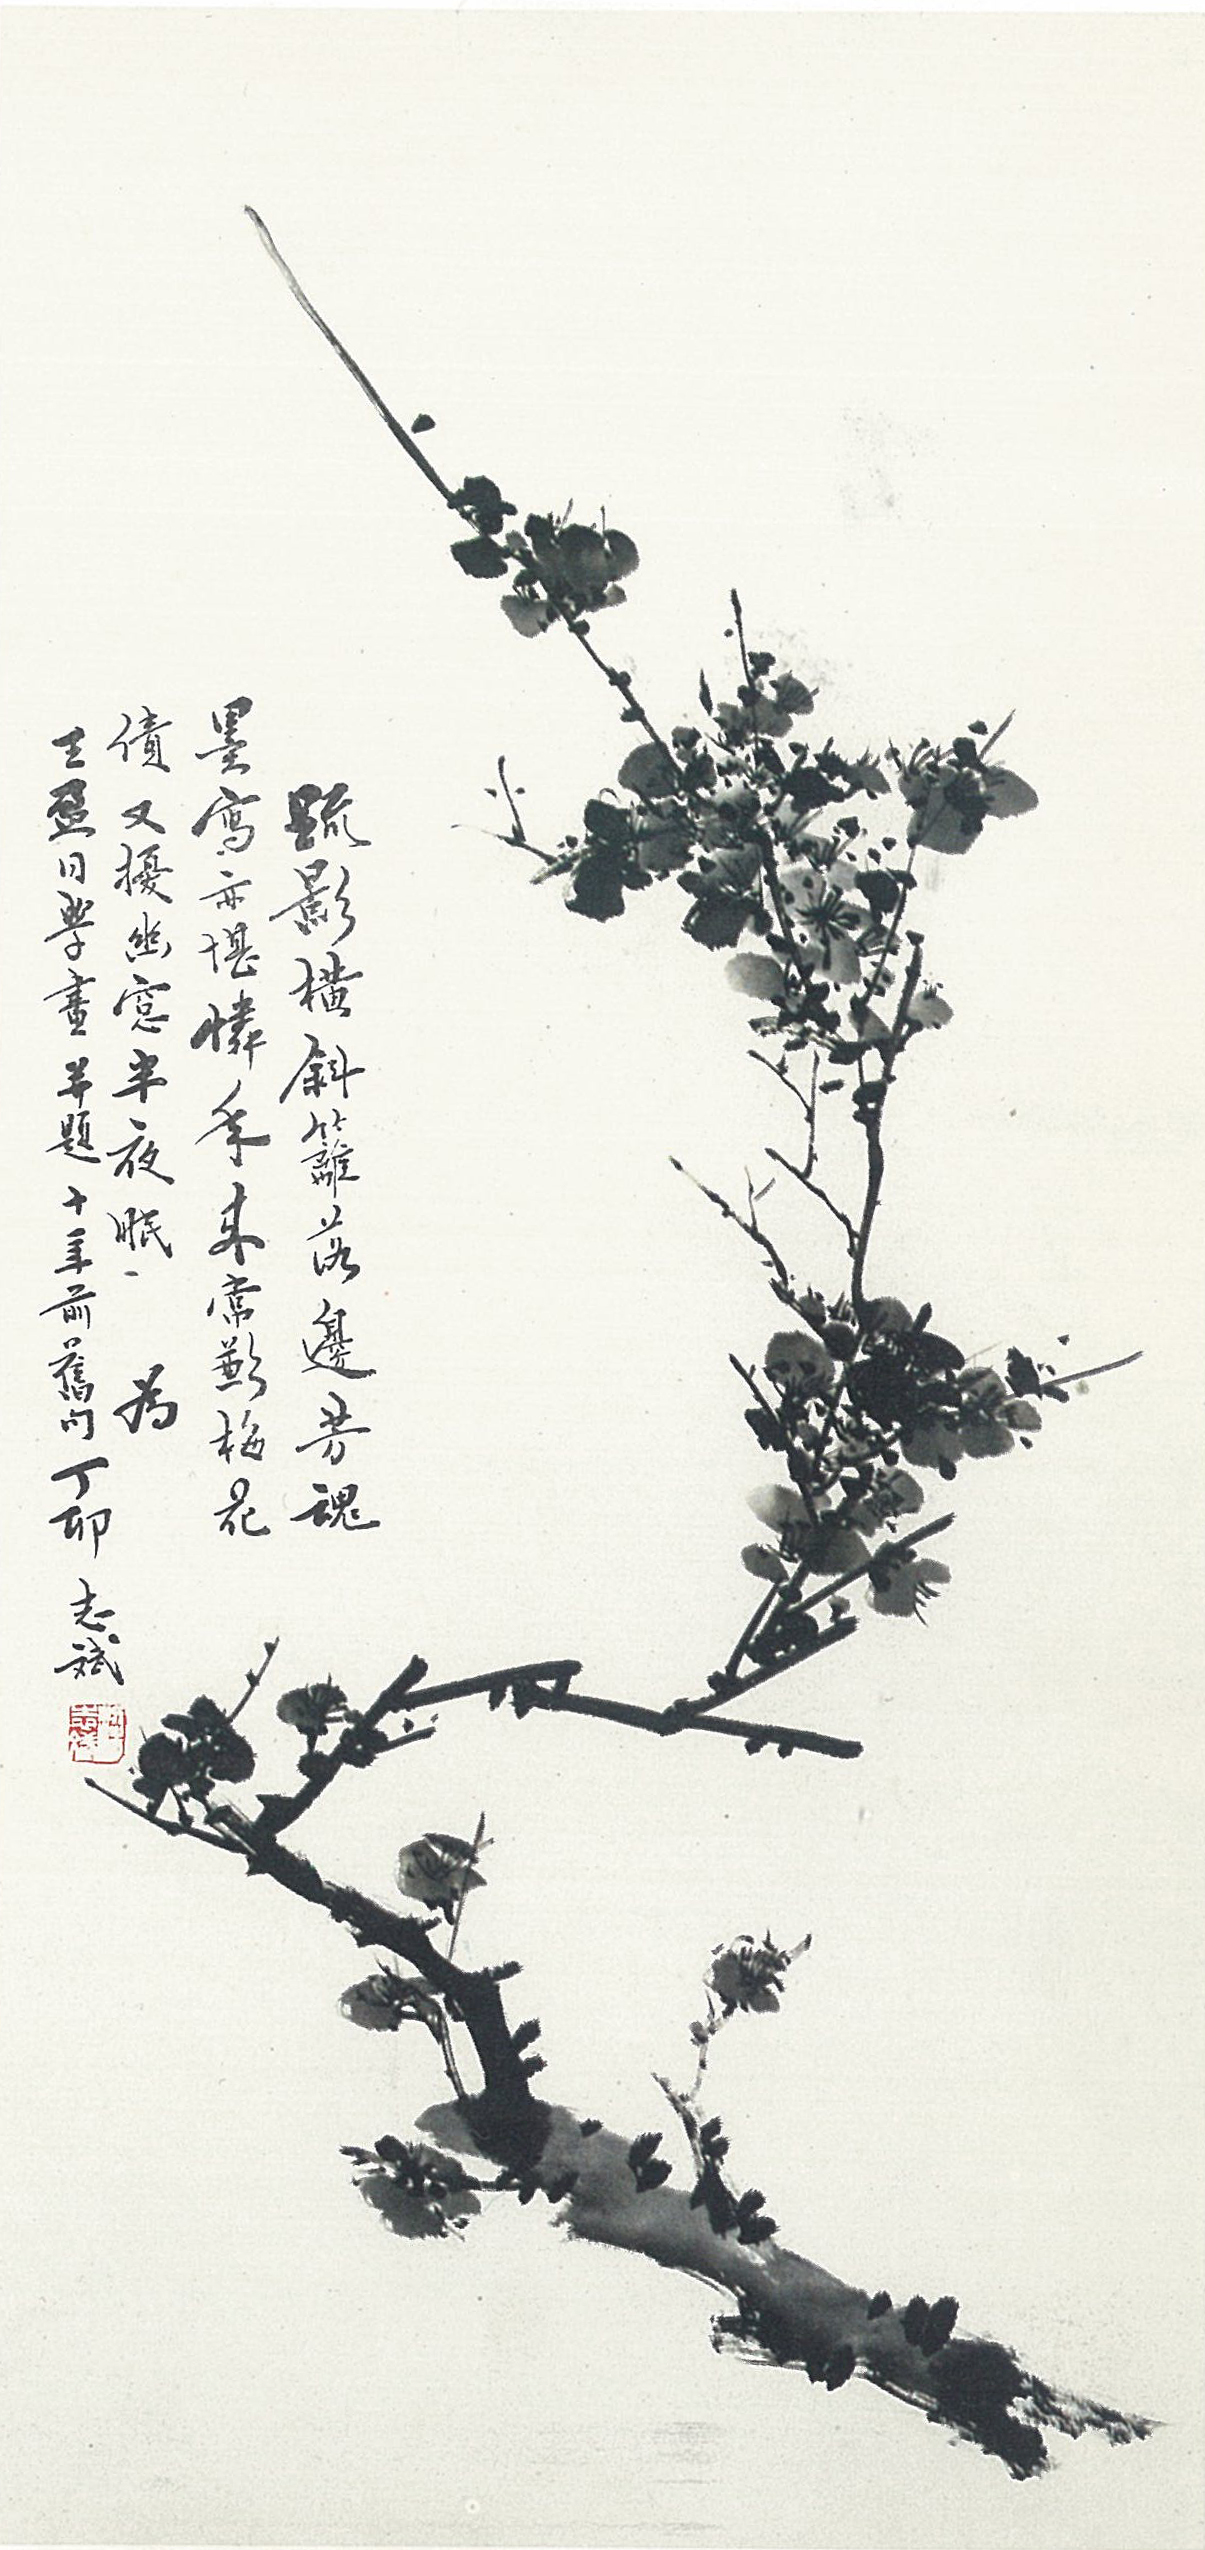 疏影橫斜籬落邊芳魂
墨寫亦堪憐年來常歎梅花
債又擾幽窓半夜眠 為
士盈同學畫并題十年前舊句丁卯志斌